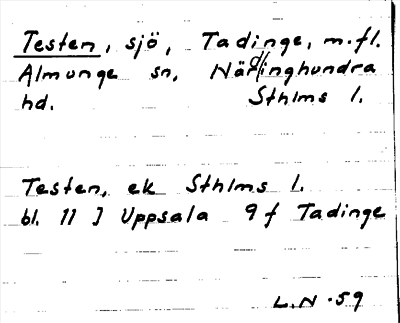 Testen, sjö, Tadinge, m.fl.
Almunge sn, Närdinghundra
hd. Sthlms l.
Testen, ek Sthlms l.
bl. 11 J Uppsala 9 f Tadinge
L.N -59